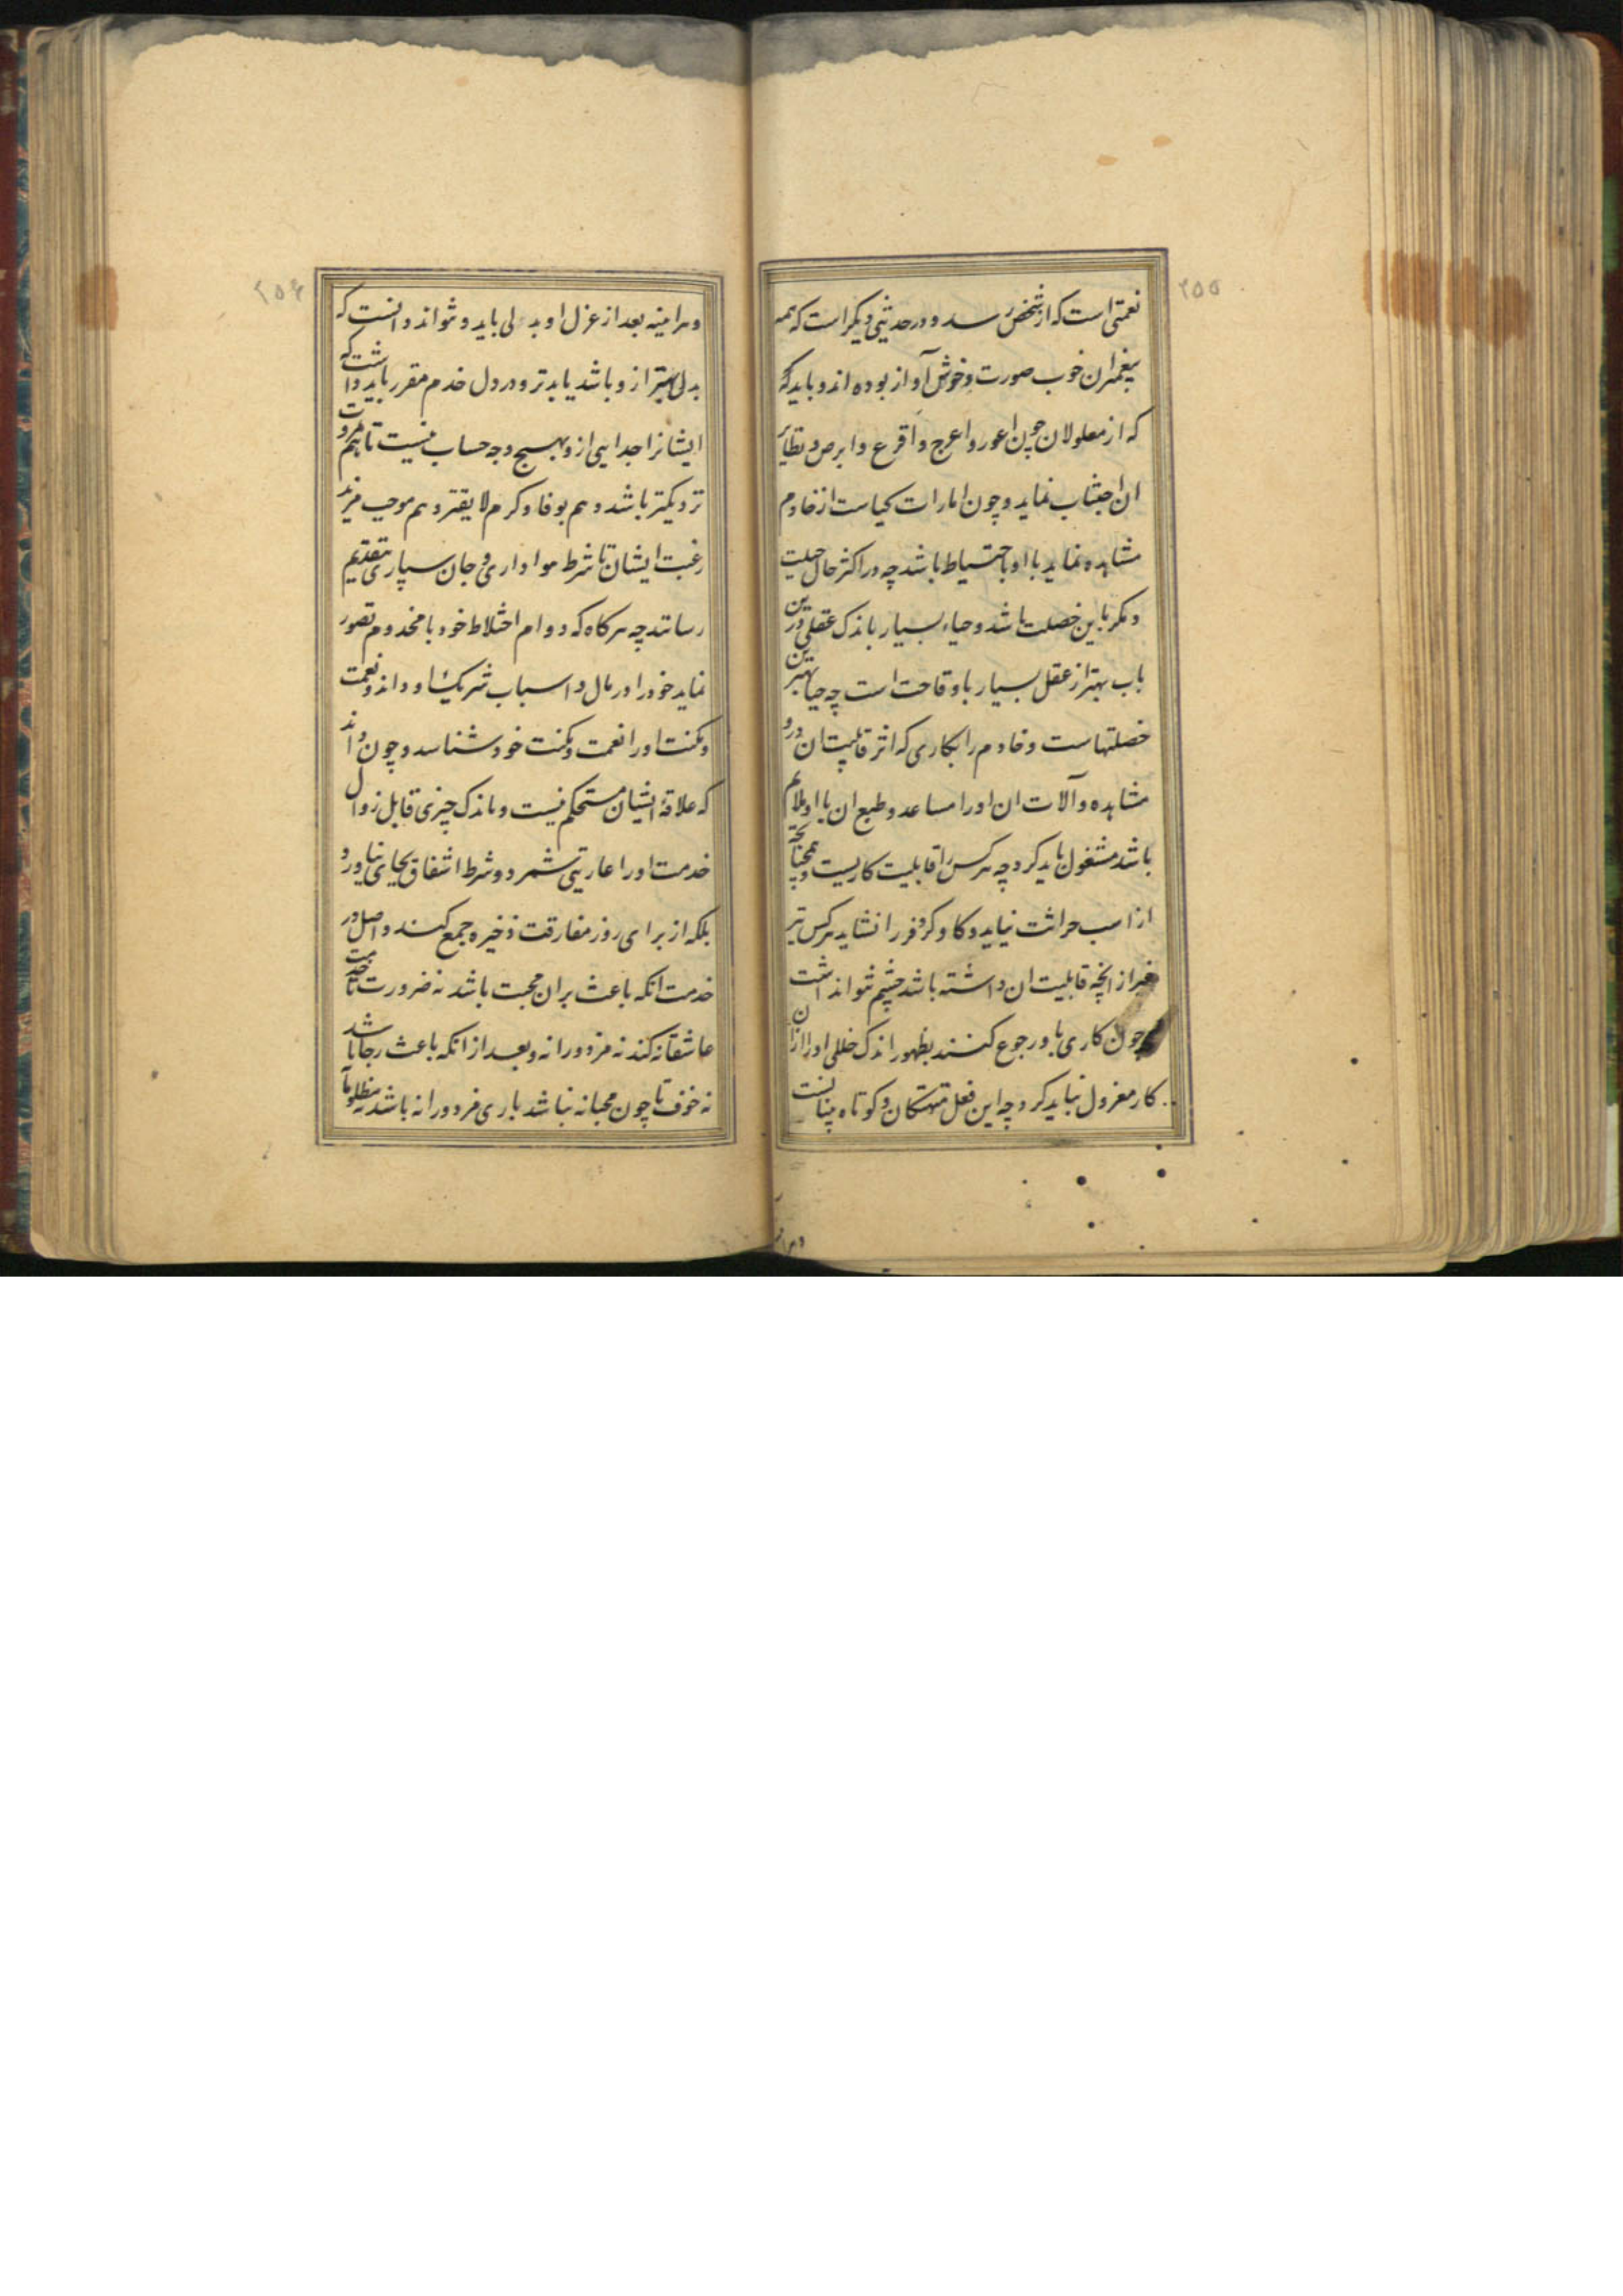 ۲۵۵
نعمتی است که از شخص رسد و در حدیثی دیگر است که همه
پیغمبران خوب صورت و خوش آواز بوده اند و باید که
که از معلولان چون اعور و اعرج و اقرع و ابرص و نظایر
ان اجتناب نماید و چون امارات کیاست از خادم
مشاهده نماید با او باحتیاط باشد چه در اکثر حال حیلت
و مکر با این خصلت باشد و حیاء بسیار باندک عقلی درین
باب بهتر از عقل بسیار با وقاحت است چه حیا بهترین
خصلتهاست و خادم را بکاری که اثر قابلیت ان درو
مشاهده و آلات ان او را مساعد و طبع ان با او ملایم
باشد مشغول باید کرد چه هر کس را قابلیت کاریست و همچنانچه
از اسب حراثت نیاید و کاو کر و فر را نشاید هر کس نیز
غیر از انچه قابلیت ان داشته باشد چشم نتواند داشت
و چون کاری باو رجوع کنند بظهور اندک خللی او را از ان
کار معزول نباید کرد چه این فعل متهتکان و کوتاه بینانست
۲۵۶
و هر اینه بعد از عزل او بدلی باید و نتواند دانست که
بدلی بهتر از و باشد یا بدتر و در دل خدم مقرر باید داشت که
ایشانرا جدایی از و بهیچ وجه حساب نیست تا هم بمروت
نزدیکتر باشد و هم بوفا و کرم لایقتر و هم موجب مزید
رغبت ایشان تا شرط هواداری و جان سپاری بتقدیم
رسانند چه هر کاه که دوام اختلاط خود با مخدوم تصور
نماید خود را در مال و اسباب شریک او داند و نعمت
و مکنت او را نعمت و مکنت خود شناسد و چون داند
که علاقه ایشان مستحکم نیست و باندک چیزی قابل زوال
خدمت او را عاریتی شمرد و شرط اشفاق بجای نیاورد
بلکه از برای روز مفارقت ذخیره جمع کند و اصل در
خدمت انکه باعث بران محبت باشد نه ضرورت تا خدمت
عاشقانه کند نه مزدورانه و بعد از انکه باعث رجا باشد
نه خوف تا چون محبانه نباشد باری مزدورانه باشد نه مظلومانه